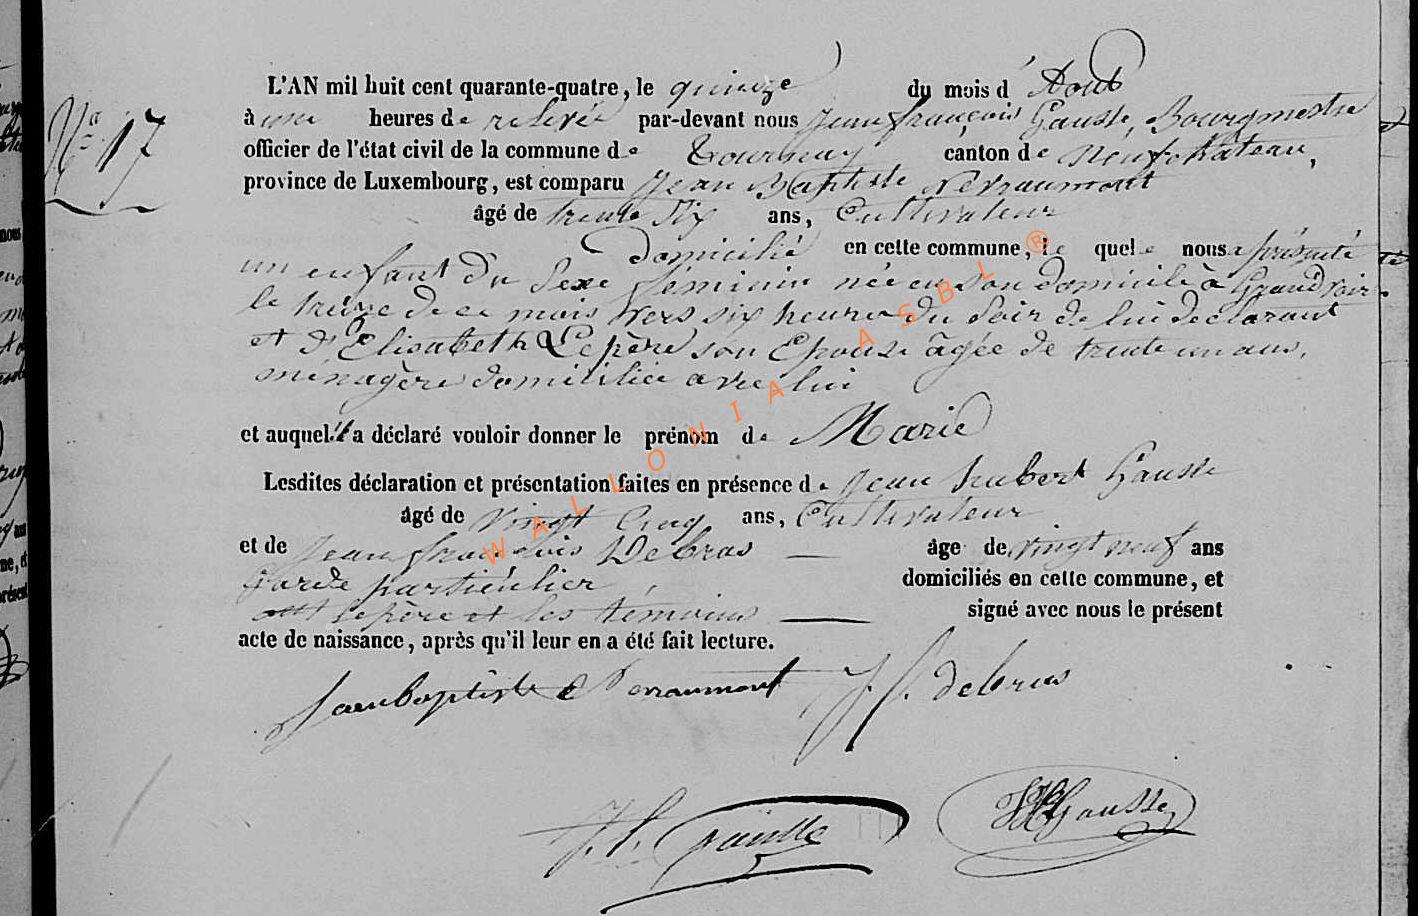 L'AN mil huit cent quarante-quatre, le quinze du mois d'Aout
N° 17
à une heures de relevée par-devant nous Jean françois Gausse, Bourgmestre
officier de l'état civil de la commune de Tournay canton de Neufchâteau,
province de Luxembourg, est comparu Jean Baptiste Nerraumont
âgé de trente Six ans, Cultivateur
domicilié en cette commune, le quel nous a présenté
un enfant du Sexe féminin née en son domicile à Grandvoir
le treize de ce mois vers six heures du Soir de lui déclarant
et d'Elisabeth Lepère son Epouse âgée de trente un ans,
ménagère domiciliée avec lui
et auquel il a déclaré vouloir donner le prénom de Marie
Lesdites déclaration et présentation faites en présence de Jean hubert Gausse
âgé de vingt Cinq ans, Cultivateur
et de Jean francois Debras âge de vingt neuf ans
Garde particulier domiciliés en cette commune, et
ont le père et les témoins signé avec nous le présent
acte de naissance, après qu'il leur en a été fait lecture.
Jean baptiste Nerraumont J f debras
J. f. Gausse JH Gausse
WALLONIA ASBL ®